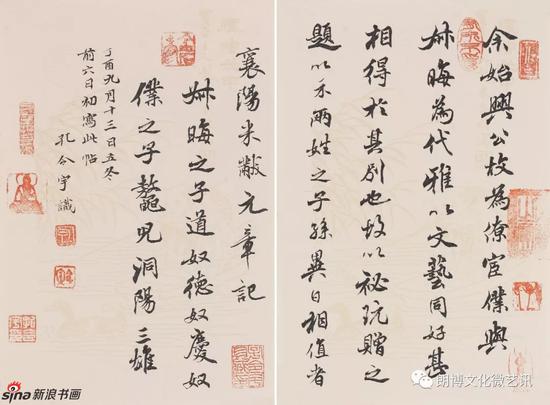 余始興公故為僚宦僕與
叔晦為代雅以文藝同好甚
相得於其別也故以祕玩贈之
題以示兩姓之子孫異日相值者
襄陽米黻元章記
叔晦之子道奴德奴慶奴
僕之子鼇兒洞陽三雄
丁酉九月十三日立冬
前六日初寫此帖
孔令宇識
sina新浪书画
朗博文化微艺讯